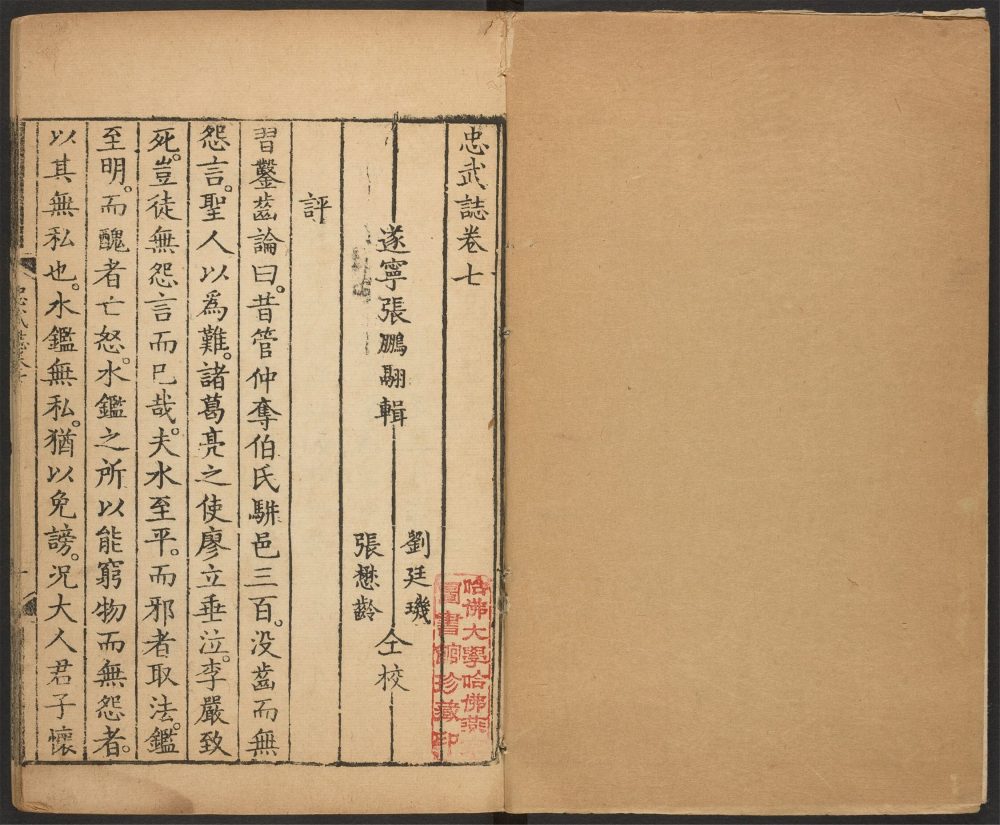 忠武誌卷七
遂寧張鵬翮輯
劉廷璣
張懋齡
仝校
評
習鑿齒論曰。昔管仲奪伯氏駢邑三百。没齒而無
怨言。聖人以爲難。諸葛亮之使廖立垂泣。李嚴致
死。豈徒無怨言而已哉。夫水至平。而邪者取法。鑑
至明。而醜者亡怒。水鑑之所以能窮物而無怨者。
以其無私也。水鑑無私。猶以免謗。况大人君子懷
哈佛大學哈佛燕
圖書館珍藏印